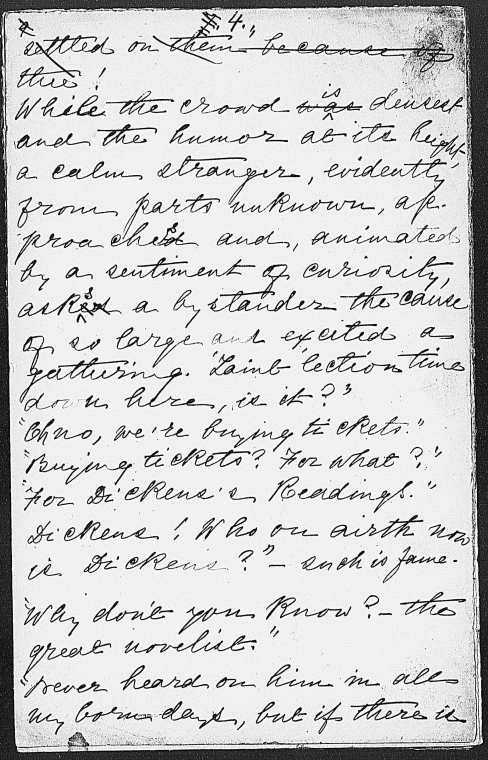 4.
settled on them" because of
this!
While the crowd was is densest
and the humor at its height,
a calm stranger, evidently
from parts unknown, ap-
proached s and, animated
by a sentiment of curiosity,
asked s a bystander the cause
of so large and excited a
gathering. 'Taint 'lection time
down here, is it?"
"Oh no, we're buying tickets."
"Buying tickets? For what?"
"For Dickens's Readings."
Dickens! Who on airth now
is Dickens?" – such is fame.
"Why don't you Know? – the
great novelist."
"Never heard on him in all
my born days, but if there is